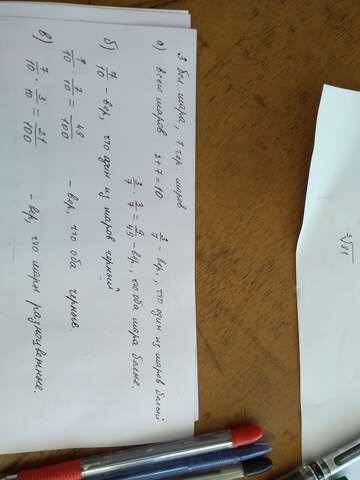 3 бел. шара, 7 чер. шаров
а) всего шаров 3+7=10 3/7 - вер., что один из шаров белый
3/7 · 3/7 = 9/49 - вер., что оба шара белые.
б) 7/10 - вер, что один из шаров черный
7/10 · 7/10 = 49/100 - вер, что оба черные
в) 7/10 · 3/10 = 21/100 - вер, что шары разноцветные.
³√81